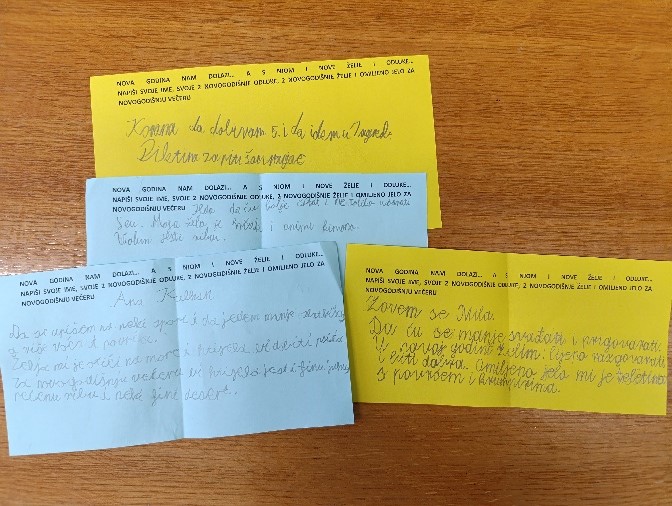 NOVA GODINA NAM DOLAZI... A S NJOM I NOVE ŽELJE I ODLUKE...
NAPIŠI SVOJE IME, SVOJE 2 NOVOGODIŠNJE ODLUKE, 2 NOVOGODIŠNJE ŽELJE I OMILJENO JELO ZA
NOVOGODIŠNJU VEČERU
Korana da dobivam 5. i da idem u Zagreb.
Piletina
NOVA GODINA NAM DOLAZI... A S NJOM I NOVE ŽELJE I ODLUKE...
NAPIŠI SVOJE IME, SVOJE 2 NOVOGODIŠNJE ODLUKE, 2 NOVOGODIŠNJE ŽELJE I OMILJENO JELO ZA
NOVOGODIŠNJU VEČERU da ću bolje i
Moja želja je i
Volim
NOVA GODINA NAM DOLAZI... A S NJOM I NOVE ŽELJE I ODLUKE...
NAPIŠI SVOJE IME, SVOJE 2 NOVOGODIŠNJE ODLUKE, 2 NOVOGODIŠNJE ŽELJE I OMILJENO JELO ZA
NOVOGODIŠNJU VEČERU
Ana
Da se upišem na neki sport i da jedem manje
i više voća i povrća.
Želja mi je otići na more i
Za novogodišnju večeru bi htjela jest i finu
pečenu ribu i neki fine desert..
NOVA GODINA NAM DOLAZI... A S NJOM I NOVE ŽELJE I ODLUKE...
NAPIŠI SVOJE IME, SVOJE 2 NOVOGODIŠNJE ODLUKE, 2 NOVOGODIŠNJE ŽELJE I OMILJENO JELO ZA
NOVOGODIŠNJU VEČERU
Zovem se
Da ću se manje svađati i prigovarati.
U novoj godini želim: lijepo razgovarati
i biti dobra. Omiljeno jelo mi je teletina
s povrćem i krumpirima.